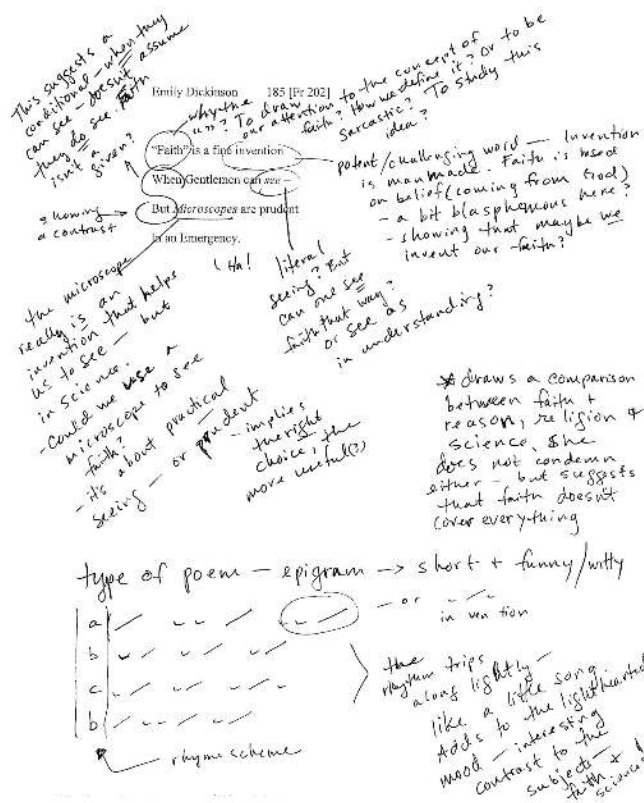 This suggests a
conditional - when they
can see - doesn't assume
they do see. Faith
isn't a
given?
Emily Dickinson 185 [Fr 202]
why the
" "? To draw
our attention to the concept of
faith? How we define it? Or to be
sarcastic? To study this
idea?
"Faith" is a fine invention
When Gentlemen can see –
But Microscopes are prudent
In an Emergency.
showing
a contrast
potent/challenging word — Invention
is manmade. Faith is based
on belief (coming from God)
- a bit blasphemous here?
- showing that maybe we
invent our faith?
Ha!
literal
seeing? But
can one see
faith that way?
or see as
in understanding?
the microscope
really is an
invention that helps
us to see - but
in science.
- Could we use a
microscope to see
faith?
- it's about practical
seeing - or prudent
- implies
the right
choice, the
more useful(?)
* draws a comparison
between faith +
reason, religion +
science. She
does not condemn
either - but suggests
that faith doesn't
cover everything
type of poem - epigram → short + funny/witty
a
b
c
b
- or
in ven tion
rhyme scheme
the
rhythm trips
along lightly -
like a little song.
Adds to the lighthearted
mood - interesting
contrast to the
subjects -
faith +
science